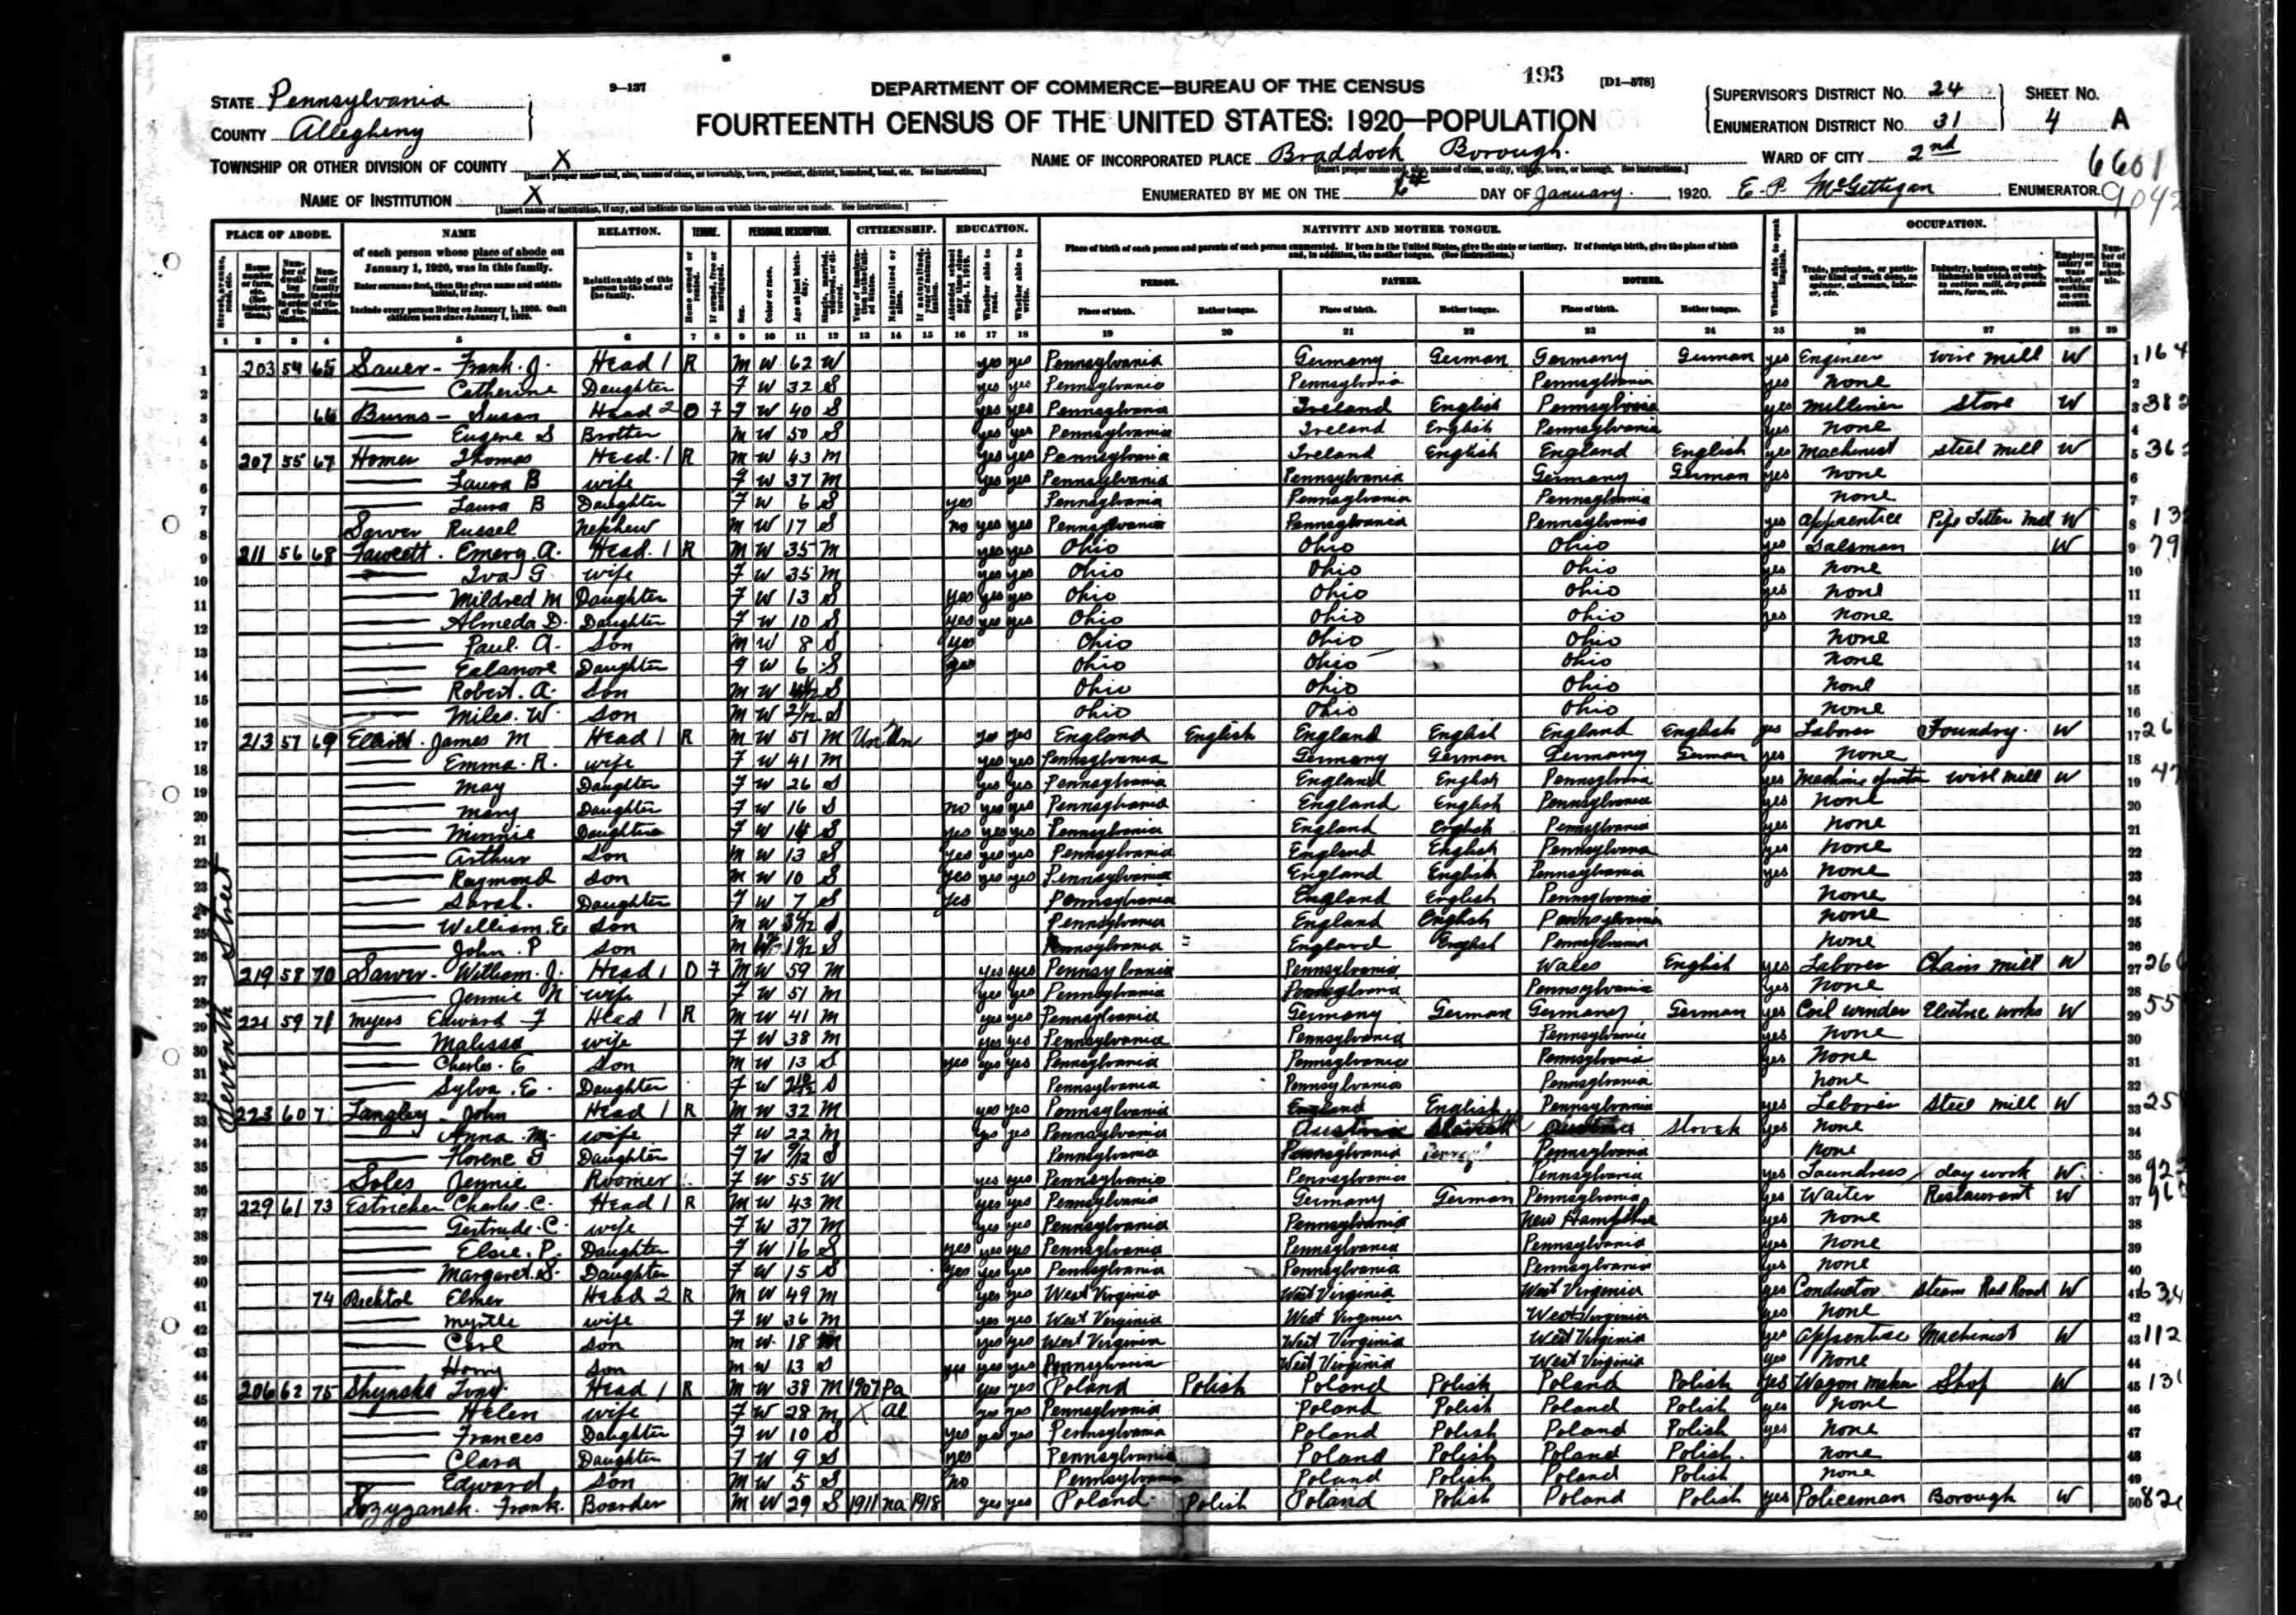 9—137
DEPARTMENT OF COMMERCE—BUREAU OF THE CENSUS
193
[D1—578]
STATE Pennsylvania
COUNTY Allegheny
FOURTEENTH CENSUS OF THE UNITED STATES: 1920—POPULATION
SUPERVISOR'S DISTRICT No. 24
ENUMERATION DISTRICT No. 31
SHEET No. 4 A
TOWNSHIP OR OTHER DIVISION OF COUNTY X
NAME OF INCORPORATED PLACE Braddock Borough.
WARD OF CITY 2nd
6601
9042
NAME OF INSTITUTION X
ENUMERATED BY ME ON THE 6th DAY OF January. 1920. E. P. McGettigan ENUMERATOR.
PLACE OF ABODE. NAME RELATION. TENURE. PERSONAL DESCRIPTION. CITIZENSHIP. EDUCATION. NATIVITY AND MOTHER TONGUE. OCCUPATION.
of each person whose place of abode on January 1, 1920, was in this family.
Enter surname first, then the given name and middle initial, if any.
Include every person living on January 1, 1920. Omit children born since January 1, 1920.
Relationship of this person to the head of the family.
Place of birth of each person and parents of each person enumerated. If born in the United States, give the state or territory. If of foreign birth, give the place of birth and, in addition, the mother tongue. (See Instructions.)
PERSON. FATHER. MOTHER.
Place of birth. Mother tongue. Place of birth. Mother tongue. Place of birth. Mother tongue.
Whether able to speak English.
1 2 3 4 5 6 7 8 9 10 11 12 13 14 15 16 17 18 19 20 21 22 23 24 25 26 27 28 29
Seventh Street
1 203 54 65 Sauer - Frank. J. Head 1 R M W 62 W yes yes Pennsylvania Germany German Germany German yes Engineer wire mill W 1 164
2 Catherine Daughter F W 32 S yes yes Pennsylvania Pennsylvania Pennsylvania yes none 2
3 66 Burns - Susan Head 2 O F F W 40 S yes yes Pennsylvania Ireland English Pennsylvania yes milliner Store W 3 382
4 Eugene S Brother M W 50 S yes yes Pennsylvania Ireland English Pennsylvania yes none 4
5 207 55 67 Homer Thomas Head. 1 R M W 43 M yes yes Pennsylvania Ireland English England English yes machinist steel mill W 5 362
6 Laura B wife F W 37 M yes yes Pennsylvania Pennsylvania Germany German yes none 6
7 Laura B Daughter F W 6 S yes Pennsylvania Pennsylvania Pennsylvania none 7
8 Sarver Russel nephew M W 17 S no yes yes Pennsylvania Pennsylvania Pennsylvania yes apprentice Pipe fitter W 8 13
9 211 56 68 Fawcett. Emery. A. Head. 1 R M W 35 M yes yes Ohio Ohio Ohio yes Salsman W 9 79
10 Iva G. wife F W 35 M yes yes Ohio Ohio Ohio yes none 10
11 Mildred M Daughter F W 13 S yes yes yes Ohio Ohio Ohio yes none 11
12 Almeda D. Daughter F W 10 S yes yes yes Ohio Ohio Ohio yes none 12
13 Paul. A. Son M W 8 S yes Ohio Ohio Ohio none 13
14 Ealanore Daughter F W 6 S yes Ohio Ohio Ohio none 14
15 Robert. A. Son M W S Ohio Ohio Ohio none 15
16 Miles. W. Son M W 2/12 S Ohio Ohio Ohio none 16
17 213 57 69 Elliott. James M Head 1 R M W 51 M Un Un yes yes England English England English England English yes Laborer Foundry. W 17 26
18 Emma. R. wife F W 41 M yes yes Pennsylvania Germany German Germany German yes none 18
19 May Daughter F W 26 S yes yes Pennsylvania England English Pennsylvania yes machine wire mill W 19 47
20 Mary Daughter F W 16 S no yes yes Pennsylvania England English Pennsylvania yes none 20
21 Minnie Daughter F W 14 S yes yes yes Pennsylvania England English Pennsylvania yes none 21
22 Arthur Son M W 13 S yes yes yes Pennsylvania England English Pennsylvania yes none 22
23 Raymond son M W 10 S yes yes yes Pennsylvania England English Pennsylvania yes none 23
24 Sarah. Daughter F W 7 S yes Pennsylvania England English Pennsylvania none 24
25 William. E Son M W S Pennsylvania England English Pennsylvania none 25
26 John. P son M W S Pennsylvania England English Pennsylvania none 26
27 219 58 70 Sarver - William. J. Head 1 O F M W 59 M yes yes Pennsylvania Pennsylvania Wales English yes Laborer Chain mill W 27 26
28 Jennie N wife F W 51 M yes yes Pennsylvania Pennsylvania Pennsylvania yes none 28
29 221 59 71 Myers Edward F Head 1 R M W 41 M yes yes Pennsylvania Germany German Germany German yes Coil winder Electric works W 29 55
30 Malissa wife F W 38 M yes yes Pennsylvania Pennsylvania Pennsylvania yes none 30
31 Charles. E Son M W 13 S yes yes yes Pennsylvania Pennsylvania Pennsylvania yes none 31
32 Sylva. E. Daughter F W S Pennsylvania Pennsylvania Pennsylvania none 32
33 223 60 7 Langley - John Head 1 R M W 32 M yes yes Pennsylvania England English Pennsylvania yes Laborer Steel mill W 33 25
34 Anna. M. wife F W 22 M yes yes Pennsylvania Austria Slovak Austria Slovak yes none 34
35 Florene G Daughter F W S Pennsylvania Pennsylvania Pennsylvania none 35
36 Soles Jennie Roomer F W 55 W yes yes Pennsylvania Pennsylvania Pennsylvania yes Laundress day work W 36 92
37 229 61 73 Estricher Charles. C. Head 1 R M W 43 M yes yes Pennsylvania Germany German Pennsylvania yes Waiter Restaurant W 37 96
38 Gertrude. C. wife F W 37 M yes yes Pennsylvania Pennsylvania New Hampshire yes none 38
39 Elsie. P. Daughter F W 16 S yes yes yes Pennsylvania Pennsylvania Pennsylvania yes none 39
40 Margaret. S. Daughter F W 15 S yes yes yes Pennsylvania Pennsylvania Pennsylvania yes none 40
41 74 Bechtol Elmer Head 2 R M W 49 M yes yes West Virginia West Virginia West Virginia yes Conductor Steam Rail Road W 41 634
42 Myrtle wife F W 36 M yes yes West Virginia West Virginia West Virginia yes none 42
43 Carl son M W 18 yes yes West Virginia West Virginia West Virginia yes apprentice Machinist W 43 112
44 Harry Son M W 13 S yes yes yes Pennsylvania West Virginia West Virginia yes none 44
45 206 62 75 Shynski Tony. Head 1 R M W 38 M 1907 Pa yes yes Poland Polish Poland Polish Poland Polish yes Wagon maker Shop W 45 131
46 Helen wife F W 28 M X Al yes yes Pennsylvania Poland Polish Poland Polish yes none 46
47 Frances Daughter F W 10 S yes yes yes Pennsylvania Poland Polish Poland Polish yes none 47
48 Clara Daughter F W 9 S yes Pennsylvania Poland Polish Poland Polish. none 48
49 Edward son M W 5 S no Pennsylvania Poland Polish Poland Polish none 49
50 Frank. Boarder M W 29 S 1911 na 1918 yes yes Poland Polish Poland Polish Poland Polish yes Policeman Borough W 50 82